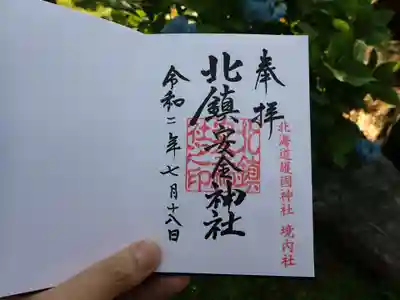 奉拝
北海道護國神社 境内社
北鎮安全神社
令和二年七月十八日